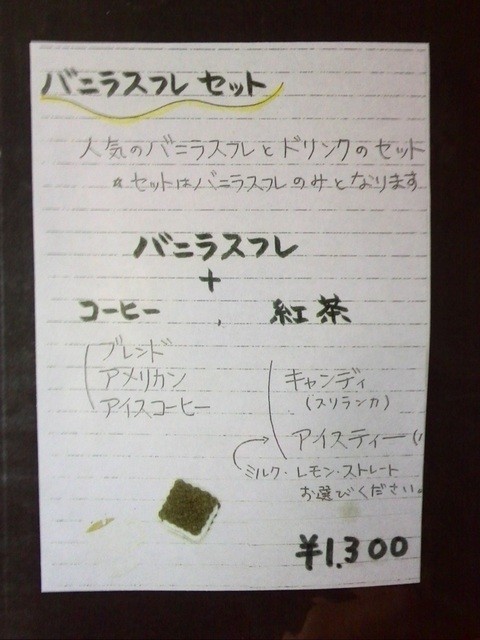 バニラスフレ セット
人気のバニラスフレとドリンクのセット
※セットはバニラスフレのみとなります
バニラスフレ
+
コーヒー , 紅茶
ブレンド
アメリカン
アイスコーヒー
キャンディ
(スリランカ)
アイスティー(
ミルク・レモン・ストレート
お選びください。
¥1.300